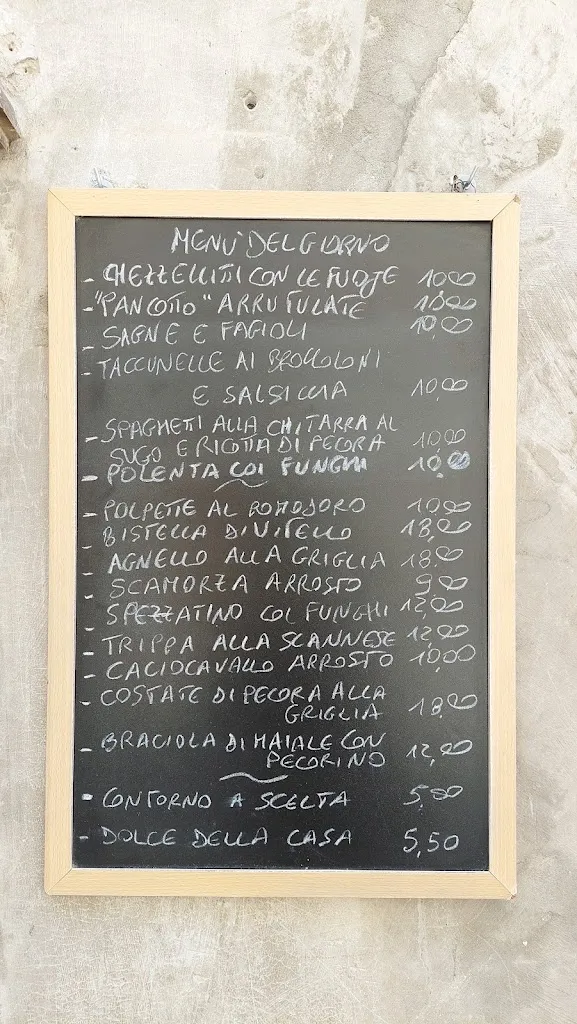 MENÙ DEL GIORNO
- CHEZZELLITTI CON LE FUOJE 10,00
- "PANCOTTO" ARRUTULATE 10,00
- SAGNE E FAGIOLI 10,00
- TACCUNELLE AI BROCCOLONI
E SALSICCIA 10,00
- SPAGHETTI ALLA CHITARRA AL
SUGO E RICOTTA DI PECORA 10,00
- POLENTA COI FUNGHI 10,00
- POLPETTE AL POMODORO 10,00
- BISTELLA DI VITELLO 18,00
- AGNELLO ALLA GRIGLIA 18,00
- SCAMORZA ARROSTO 9,00
- SPEZZATINO COI FUNGHI 12,00
- TRIPPA ALLA SCANNESE 12,00
- CACIOCAVALLO ARROSTO 10,00
- COSTATE DI PECORA ALLA
GRIGLIA 18,00
- BRACIOLA DI MAIALE CON
PECORINO 12,00
- CONTORNO A SCELTA 5,00
- DOLCE DELLA CASA 5,50